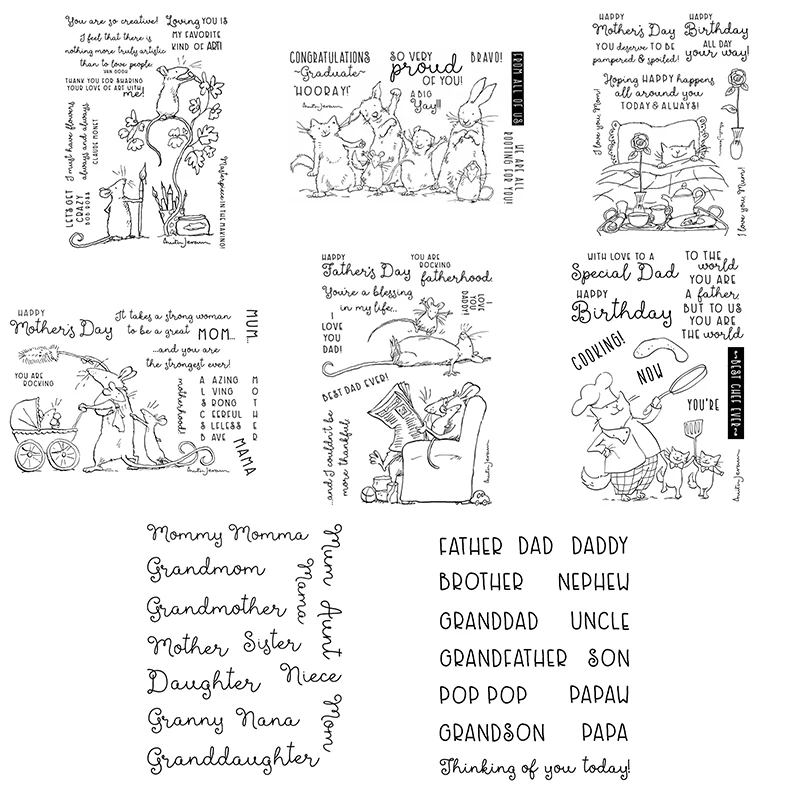 You are so creative!
I feel that there is
nothing more truly artistic
than to love people.
VAN GOGH
THANK YOU FOR SHARING
YOUR LOVE OF ART WITH
me!
Loving YOU IS
MY FAVORITE
KIND OF ART!
I must have flowers
always and always
CLAUDE MONET
LET'S GET
CRAZY
BOB ROSS
Masterpiece IN THE MAKING!
CONGRATULATIONS
~Graduate~
"HOORAY!"
SO VERY
proud
OF YOU!
A BIG
Yay!!!
BRAVO!
FROM ALL OF US
WE ARE ALL
ROOTING FOR YOU!
HAPPY
Mother's Day
YOU DESERVE TO BE
pampered & spoiled!
HAPPY
Birthday
ALL DAY
your way!
Hoping HAPPY happens
all around you
TODAY & ALWAYS!
I love you Mom!
I love you Mum!
HAPPY
Mother's Day
It takes a strong woman
to be a great MOM...
...and you are
the strongest ever!
MUM...
YOU ARE
ROCKING
motherhood!
A AZING
L VING
S RONG
C EERFUL
S LFLESS
B AVE
M
O
T
H
E
R
MAMA
HAPPY
Father's Day
YOU ARE
ROCKING
fatherhood
You're a blessing
in my life...
I
LOVE
YOU
DAD!
I
LOVE
YOU
DADDY!
BEST DAD EVER!
...and I couldn't be
more thankful
WITH LOVE TO A
Special Dad
HAPPY
Birthday
TO THE
world
YOU ARE
a father,
BUT TO US
YOU ARE
THE world
COOKING!
NOW
YOU'RE
~BEST CHEF EVER~
Mommy Momma
Grandmom
Grandmother
Mother Sister
Daughter Niece
Granny Nana
Granddaughter
Mum Aunt
Mama
Mom
FATHER DAD DADDY
BROTHER NEPHEW
GRANDDAD UNCLE
GRANDFATHER SON
POP POP PAPAW
GRANDSON PAPA
Thinking of you today!